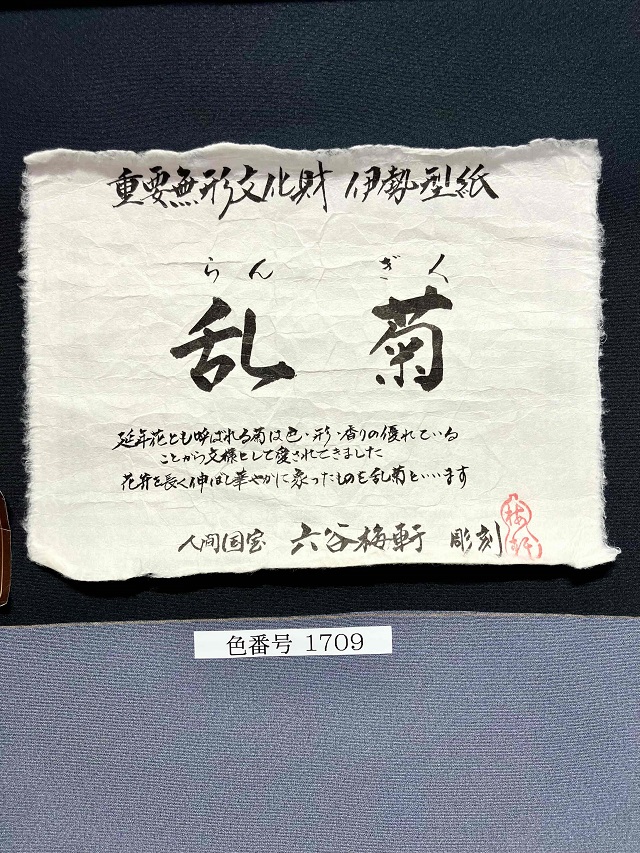 重要無形文化財 伊勢型紙
らん ぎく
乱 菊
延年花とも呼ばれる菊は色・形・香りの優れている
ことから文様として愛されてきました
花弁を長く伸ばし華やかに象ったものを乱菊といいます
人間国宝 六谷梅軒 彫刻
梅軒
色番号 1709